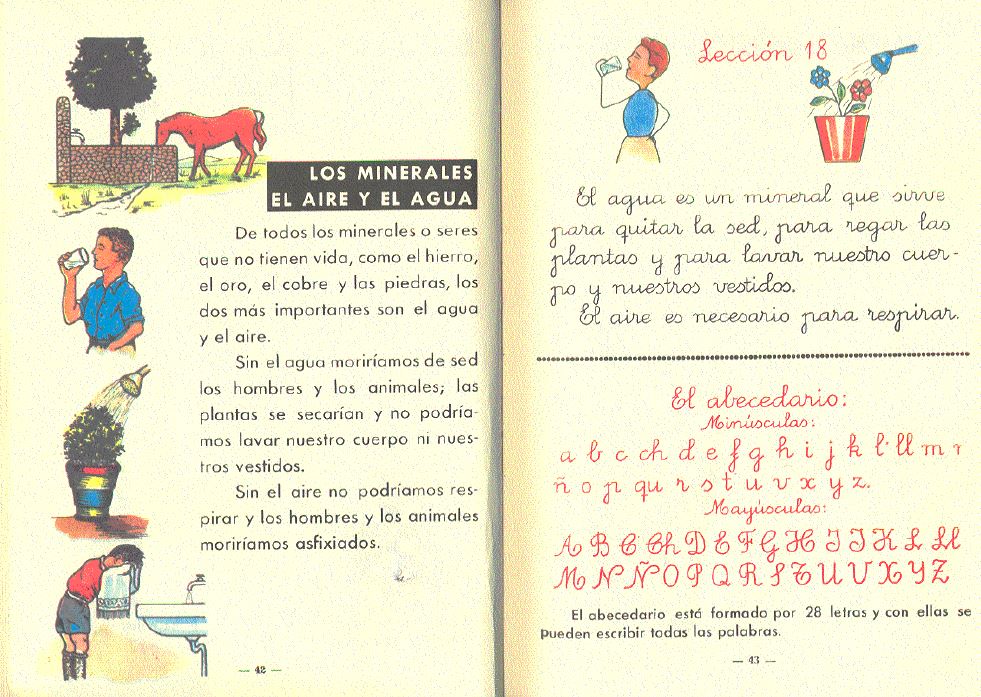 LOS MINERALES
EL AIRE Y EL AGUA
De todos los minerales o seres
que no tienen vida, como el hierro,
el oro, el cobre y las piedras, los
dos más importantes son el agua
y el aire.
Sin el agua moriríamos de sed
los hombres y los animales; las
plantas se secarían y no podría-
mos lavar nuestro cuerpo ni nues-
tros vestidos.
Sin el aire no podríamos res-
pirar y los hombres y los animales
moriríamos asfixiados.
— 42 —
Lección 18
El agua es un mineral que sirve
para quitar la sed, para regar las
plantas y para lavar nuestro cuer-
po y nuestros vestidos.
El aire es necesario para respirar.
El abecedario:
Minúsculas:
a b c ch d e f g h i j k l ll m n
ñ o p qu r s t u v x y z.
Mayúsculas:
A B C Ch D E F G H I J K L Ll
M N Ñ O P Q R S T U V X Y Z
El abecedario está formado por 28 letras y con ellas se
pueden escribir todas las palabras.
— 43 —